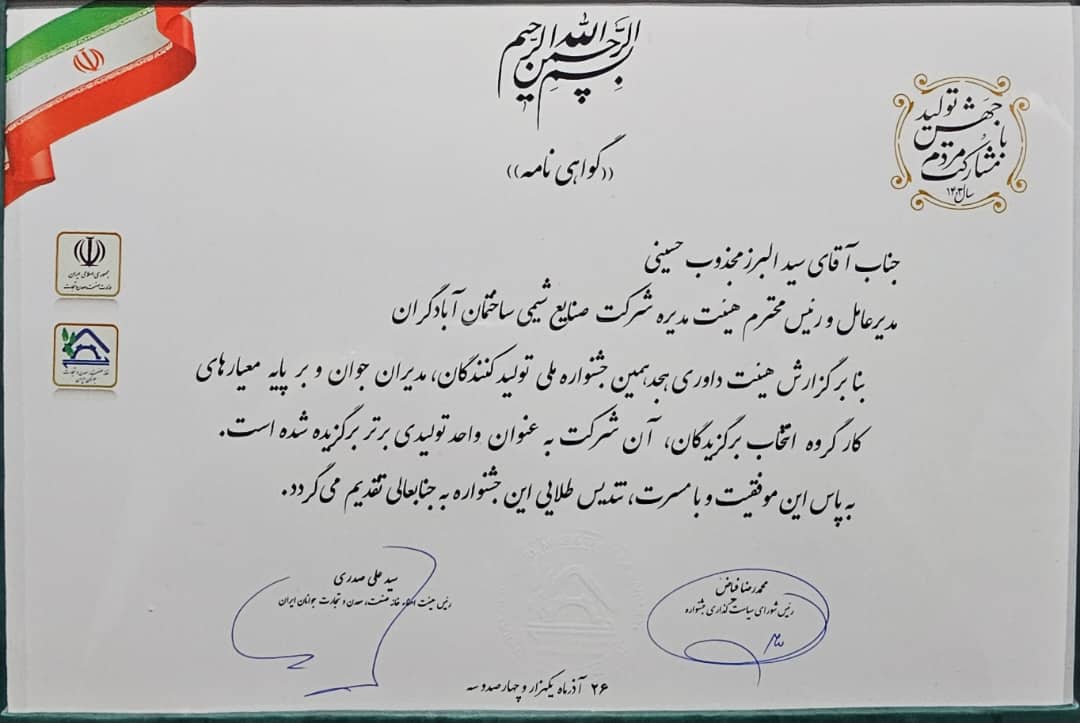 بسم الله الرحمن الرحیم
جهش تولید
با
مشارکت مردم
سال ۱۴۰۳
((گواهی نامه))
جمهوری اسلامی ایران
وزارت صنعت، معدن و تجارت
خانه صنعت، معدن و تجارت
جوانان ایران
جناب آقای سید البرز مجذوب حسینی
مدیرعامل و رئیس محترم هیئت مدیره شرکت صنایع شیمی ساختمان آبادگران
بنا بر گزارش هیئت داوری هجدهمین جشنواره ملی تولیدکنندگان، مدیران جوان و بر پایه معیارهای
کارگروه انتخاب برگزیدگان، آن شرکت به عنوان واحد تولیدی برتر برگزیده شده است.
به پاس این موفقیت و با مسرت، تندیس طلایی این جشنواره به جنابعالی تقدیم می گردد.
محمدرضا فیاض
رئیس شورای سیاست گذاری جشنواره
سید علی صدری
رئیس هیئت امناء خانه صنعت، معدن و تجارت جوانان ایران
۲۶ آذرماه یکهزار و چهارصد و سه